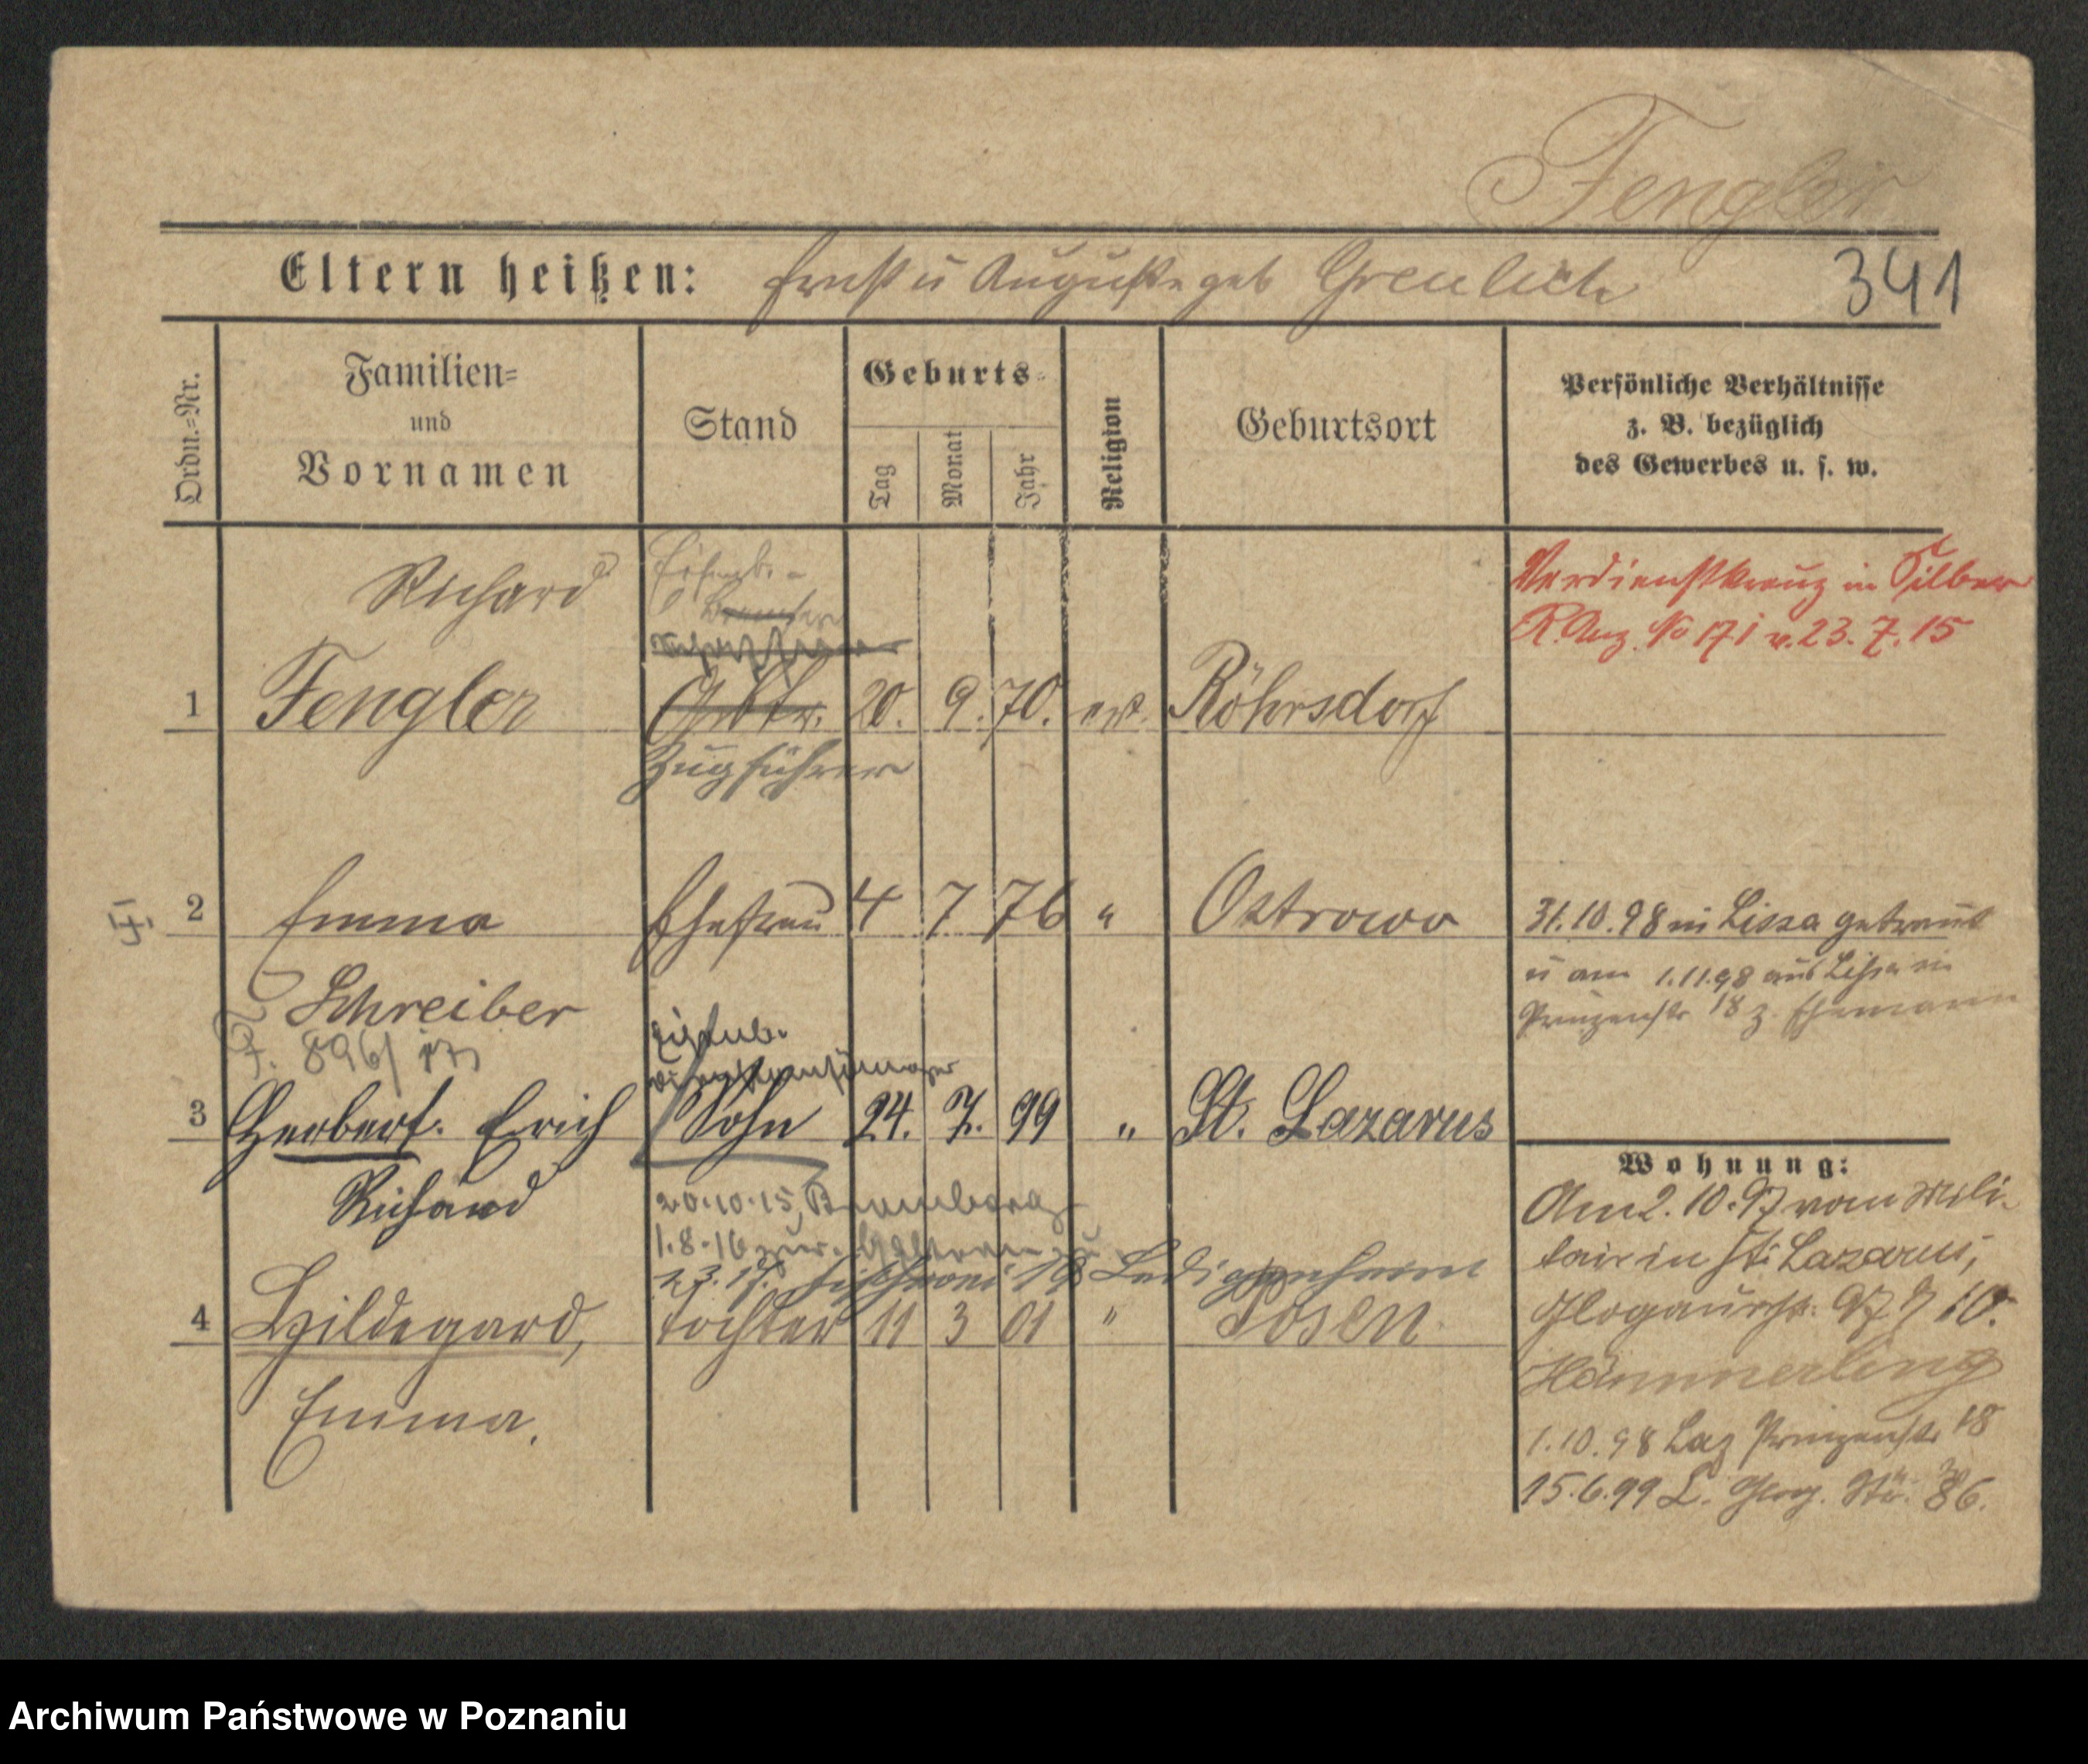 Fengler
Eltern heißen: Ernst u Auguste geb Greulich
341
Ordn.=Nr.
Familien=
und
Vornamen
Stand
Geburts=
Tag
Monat
Jahr
Religion
Geburtsort
Persönliche Verhältnisse
z. B. bezüglich
des Gewerbes u. s. w.
Richard
Eisenb.-
Bremser
Verdienstkreuz in Silber
R. Anz. No 171 v. 23. 7. 15
1 Fengler Arbtr. 20. 9. 70. ev. Röhrsdorf
Zugführer
2 Emma Ehefrau 4 7 76 " Ostrowo
31.10.98 in Lissa getraut
u am 1.11.98 aus Lissa in
Prinzenstr 18 z. Ehemann
Schreiber
F. 896/17
Eisenb.
3 Herbert. Erich Sohn 24. 7. 99 " St. Lazarus
Richard
20.10.15 Bromberg
1.8.16 zur.
1.3.17. 18 Ledigenheim
4 Hildegard, Tochter 11 3 01 " Posen.
Emma.
Wohnung:
Am 2. 10. 97 vom Mili-
tair in St. Lazarus,
Glogauerstr. 97
Hämmerling
1.10.98 Laz Prinzenstr 18
15.6.99 L. Glog. Str. 86.
Archiwum Państwowe w Poznaniu